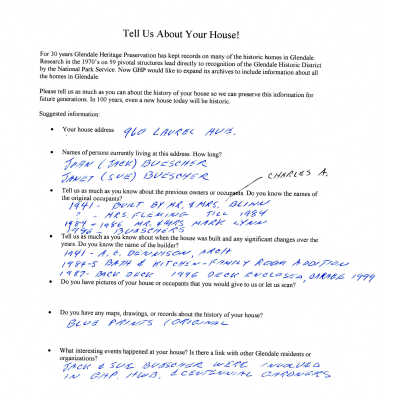 Tell Us About Your House!
For 30 years Glendale Heritage Preservation has kept records on many of the historic homes in Glendale.
Research in the 1970's on 99 pivotal structures lead directly to recognition of the Glendale Historic District
by the National Park Service. Now GHP would like to expand its archives to include information about all
the homes in Glendale.
Please tell us as much as you can about the history of your house so we can preserve this information for
future generations. In 100 years, even a new house today will be historic.
Suggested information:
• Your house address 960 LAUREL AVE.
• Names of persons currently living at this address. How long?
JOHN (JACK) BUESCHER
JANET (SUE) BUESCHER
CHARLES A.
• Tell us as much as you know about the previous owners or occupants. Do you know the names of
the original occupants?
1941 - BUILT BY MR. & MRS. BLINN
" - MRS. FLEMING TILL 1984
1984 - 1986 MR. & MRS MARK LYNN
1986 - BUESCHERS
• Tell us as much as you know about when the house was built and any significant changes over the
years. Do you know the name of the builder?
1941 - A. C. DENNISON, ARCH
1984-5 BATH & KITCHEN - FAMILY ROOM ADDITION
1987 - BACK DECK 1996 DECK ENCLOSED, GARAGE 1999
• Do you have pictures of your house or occupants that you would give to us or let us scan?
• Do you have any maps, drawings, or records about the history of your house?
BLUE PRINTS (ORIGINAL
• What interesting events happened at your house? Is there a link with other Glendale residents or
organizations?
JACK & SUE BUESCHER WERE INVOLVED
IN GHP, & CENTENNIAL GARDNERS